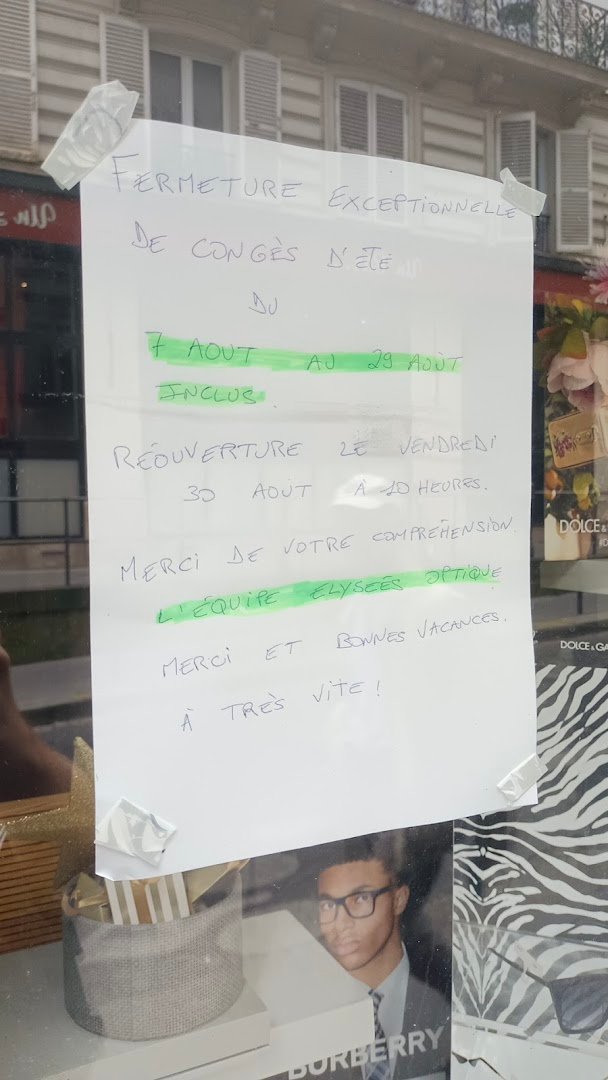 FERMETURE EXCEPTIONNELLE
DE CONGÈS D'ÉTÉ
DU
7 AOUT AU 29 AOÛT
INCLUS.
RÉOUVERTURE LE VENDREDI
30 AOUT À 10 HEURES.
MERCI DE VOTRE COMPRÉHENSION.
L'ÉQUIPE ELYSEÉS OPTIQUE
MERCI ET BONNES VACANCES.
À TRÈS VITE !
DOLCE &
DOLCE & GA
BURBERRY